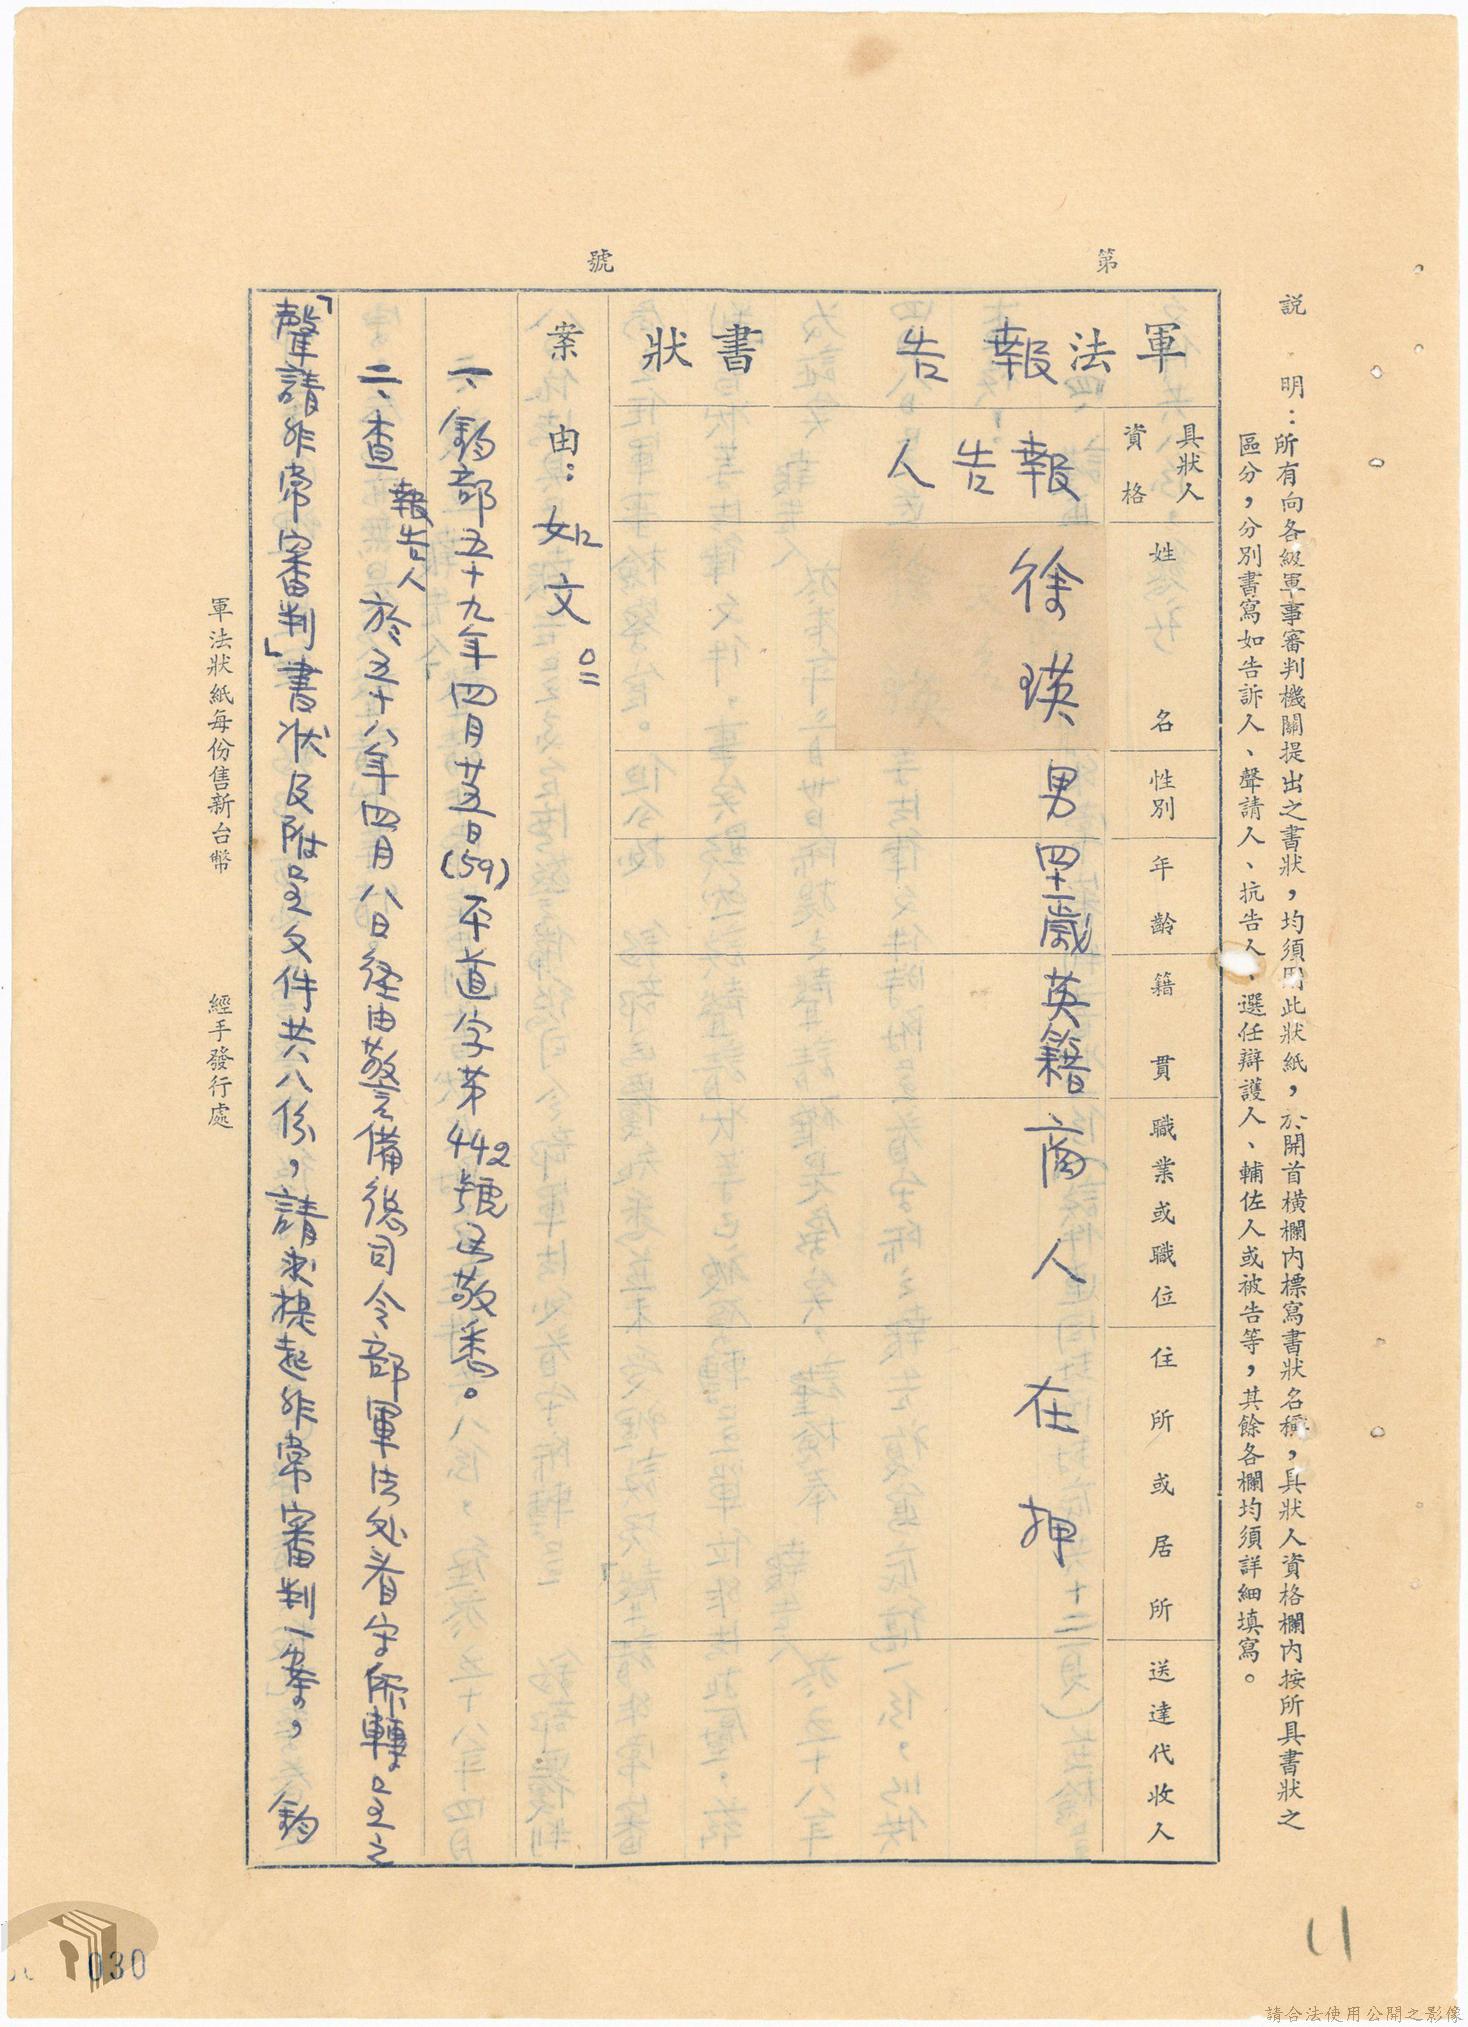 說明：所有向各級軍事審判機關提出之書狀，均須用此狀紙，於開首橫欄內標寫書狀名稱，具狀人資格欄內按所具書狀之
區分，分別書寫如告訴人、聲請人、抗告人、選任辯護人、輔佐人或被告等，其餘各欄均須詳細填寫。
第 號
軍法報告書狀
具狀人資格 姓名 性別 年齡 籍貫 職業或職位 住所或居所 送達代收人
報告人 徐瑛 男 四十一歲 英籍 商人 在押
案由：如文。
一、鈞部五十九年四月廿五日(59)平道字第442號函敬悉。
二、查報告人於五十八年四月八日経由警備總司令部軍法处看守所轉呈之
「聲請非常審判」書狀及附呈文件共八份，請求提起非常審判一案，鈞
軍法狀紙每份售新台幣 經手發行處
030
11
請合法使用公開之影像